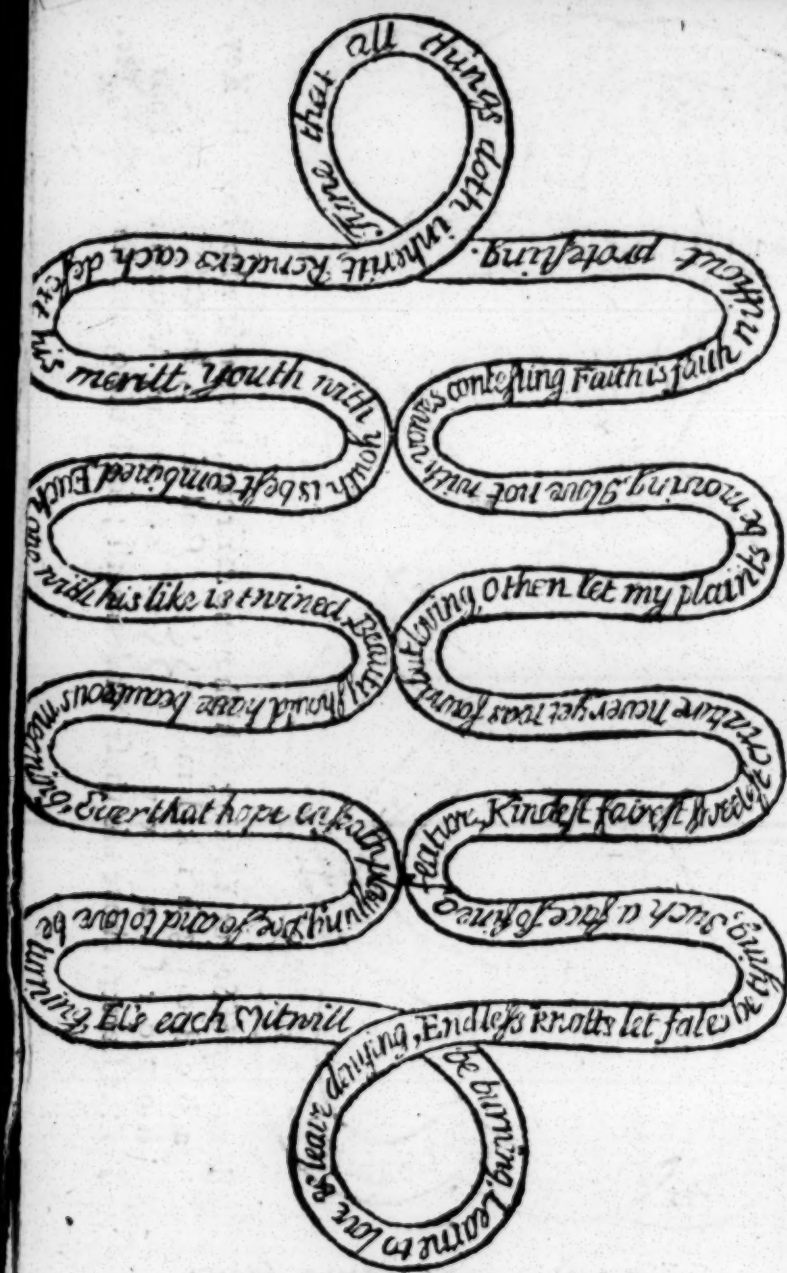 Time that all things doth inheritt, Renders each desert his meritt. Youth with youth is best combined, Each one with his like is twined, Beauty should have beauteous meaning, Ever that hope easeth playning, Doe so and to love be turning, Els each Eye will be burning, Learne to love & leave denying, Endless knotts let fates be tying, Such a face so fine a feature, Kindest fairest sweetest creature never yet was found but loving, O then let my plaints be moving, I love not with vowes contesting Faith is faith without protesting.